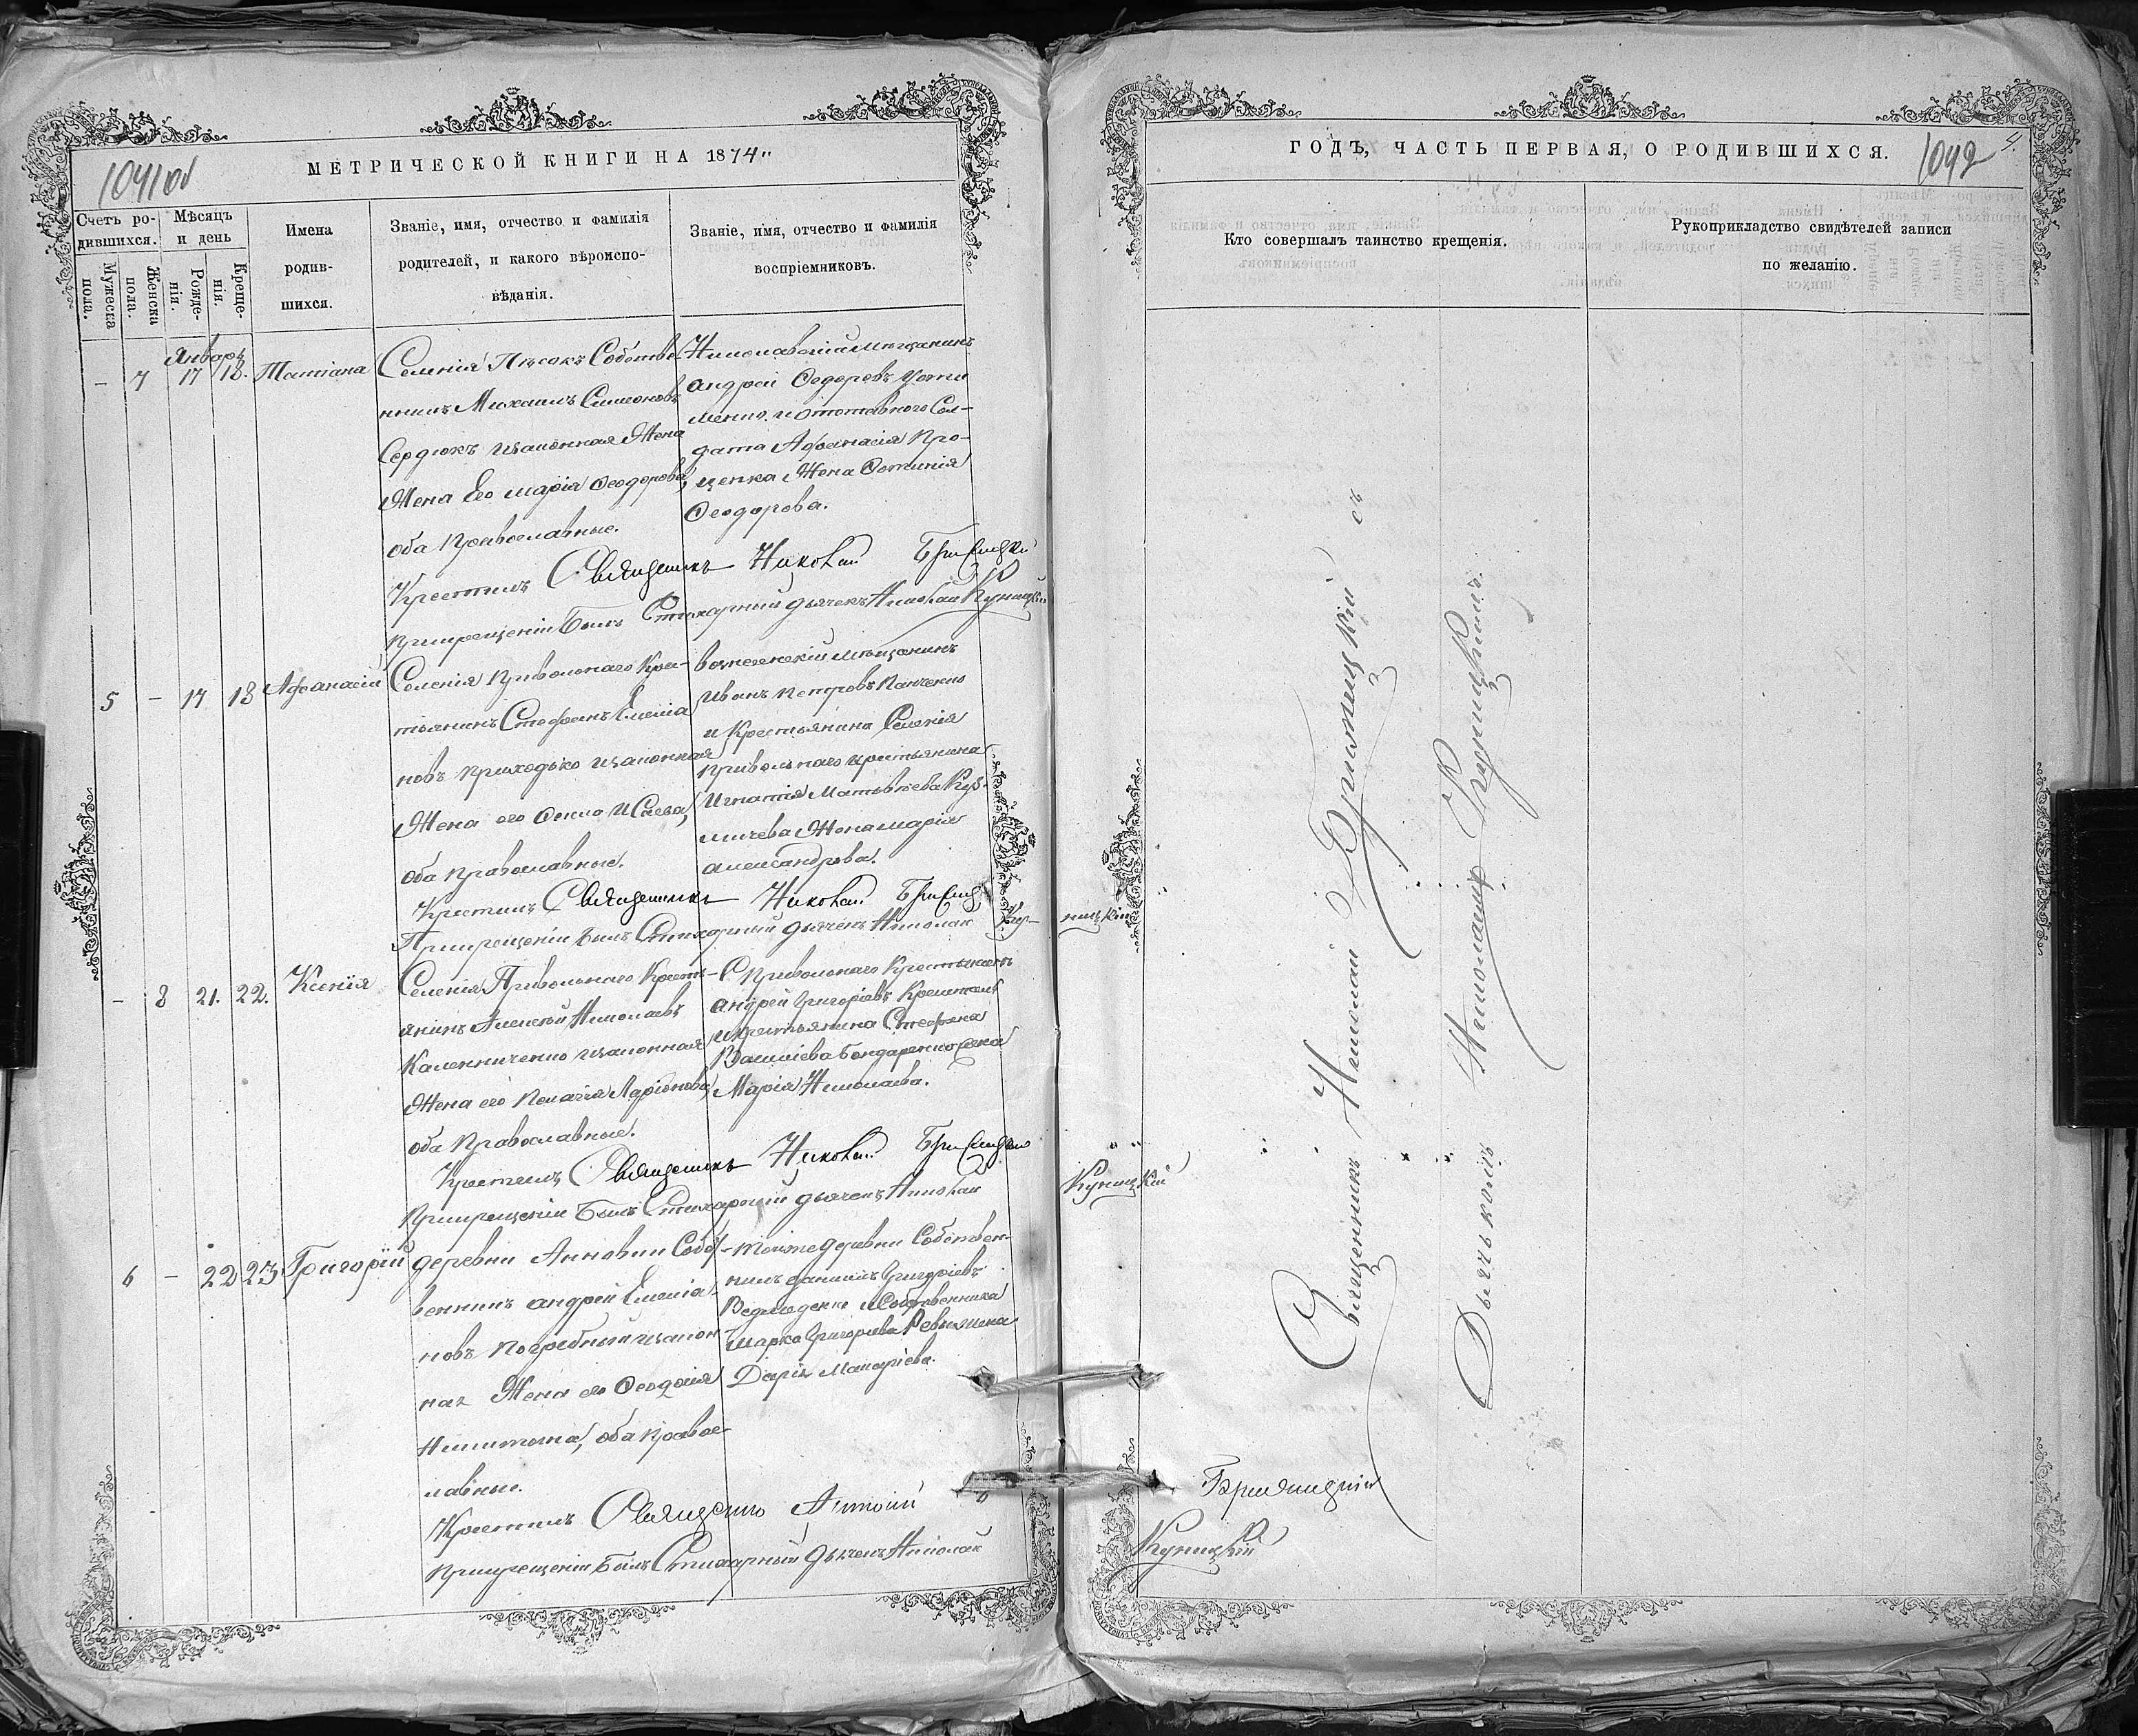 1041 об
МЕТРИЧЕСКОЙ КНИГИ НА 1874"
Счетъ ро-
дившихся.
Мужеска
пола.
Женска
пола.
Мѣсяцъ
и день
Рожде-
нія.
Креще-
нія.
Имена
родив-
шихся.
Званіе, имя, отчество и фамилія
родителей, и какого вѣроиспо-
вѣданія.
Званіе, имя, отчество и фамилія
воспріемниковъ.
Январь
– 7 17 18. Татіана
Селенія Пѣсокъ Собстве-
нникъ Михаилъ Симеоновъ
Сердюкъ изаконная Жена
Жена Его Марія Ѳеодорова,
оба Православные.
Николаевскій мѣщанинъ
Андрей Ѳедоровъ
и отставного Сол-
дата Аѳанасія Про-
ценка Жена Ѳотинія
Ѳеодорова.
Крестилъ Священникъ Николай Бришицкій
При крещеніи Былъ Стихарный дьячекъ Николай Куницкій
5 – 17 18 Аѳанасій
Селенія Привольнаго Крес-
тьянинъ Стефанъ Емелiа
новъ Приходько изаконная
Жена его Ѳекла Исаева,
оба Православные.
вознесенскій мѣщанинъ
Иванъ Петровъ Панченко
и Крестьянина Селенія
Привольнаго крестьянина
Игнатія Матвѣева Куз-
мичева Жена Марія
Александрова.
Крестилъ Священникъ Николай Бришиц
При крещеніи Былъ Стихарный дьячекъ Николай Ку-
ницкій
– 8 21. 22. Ксенія
Селенія Привольнаго Крест-
янинъ Алексѣй Николаевъ
Калениченко изаконная
Жена его Пелагія Ларіонова,
оба Православные.
С Привольнаго Крестьянинъ
Андрей Григоріевъ
и Крестьянина Стефана
Василіева Бондаренко Жена
Марія Николаева.
Крестилъ Священникъ Николай Бришицкій
При крещеніи Былъ Стихарный дьячекъ Николай
Куницкій
6 – 22 23 Григорій
деревни Анновки Собст-
венникъ Андрей Емелiа-
новъ Погребный изакон-
ная Жена его Ѳеодосія
Никитина, оба Правос-
лавные.
Тойже деревни Собствен-
никъ Даніилъ Григоріевъ
Ведмеденко и Собственника
Марка Григорьева Жена
Дарія Макаріева.
Крестилъ Священникъ Антоній
Бришицкій
При крещеніи Былъ Стихарный дьячекъ Николай
Куницкій
ГОДЪ, ЧАСТЬ ПЕРВАЯ, О РОДИВШИХСЯ.
1042
4.
Кто совершалъ таинство крещенія.
Рукоприкладство свидѣтелей записи
по желанію.
Священникъ Николай Бришицкій съ
Дьячькомъ Николаемъ Куницкимъ.